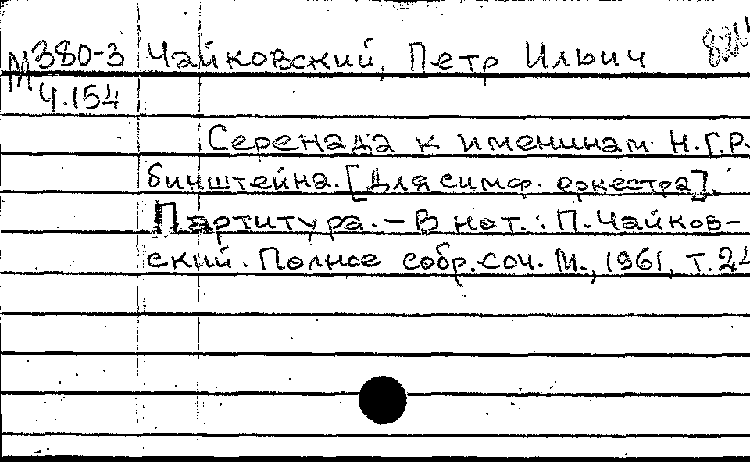 М 380-3 Чайковский, Петр Ильич
Ч.154
Серенада к именинам Н.Г.Р.
бинштейна. [Для симф. оркестра].
Партитура. – В нот.: П. Чайков-
ский. Полное собр. соч. М., 1961, т. 24